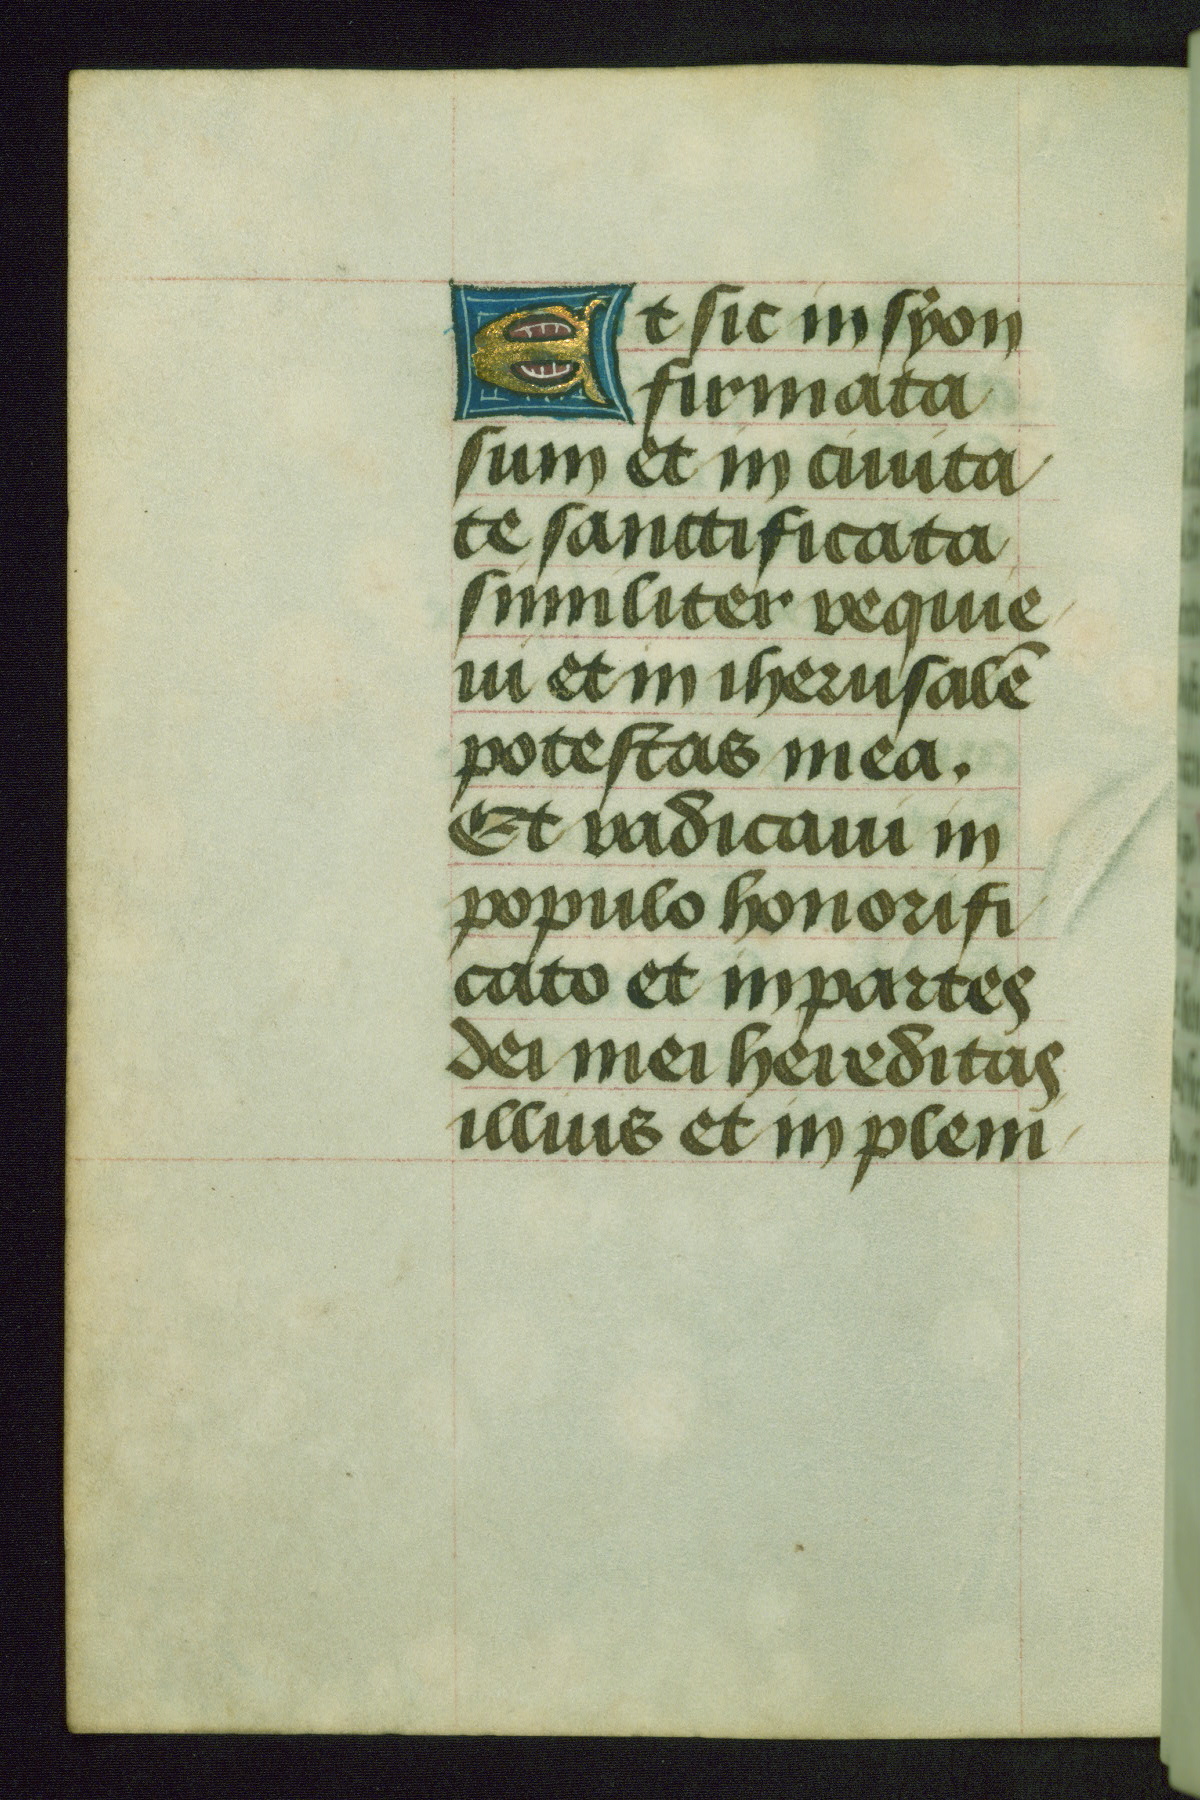 Et sic in syon
firmata
sum et in ciuita
te sanctificata
similiter requie
ui et in iherusalē
potestas mea.
Et radicaui in
populo honorifi
cato et in partes
dei mei hereditas
illius et in pleni